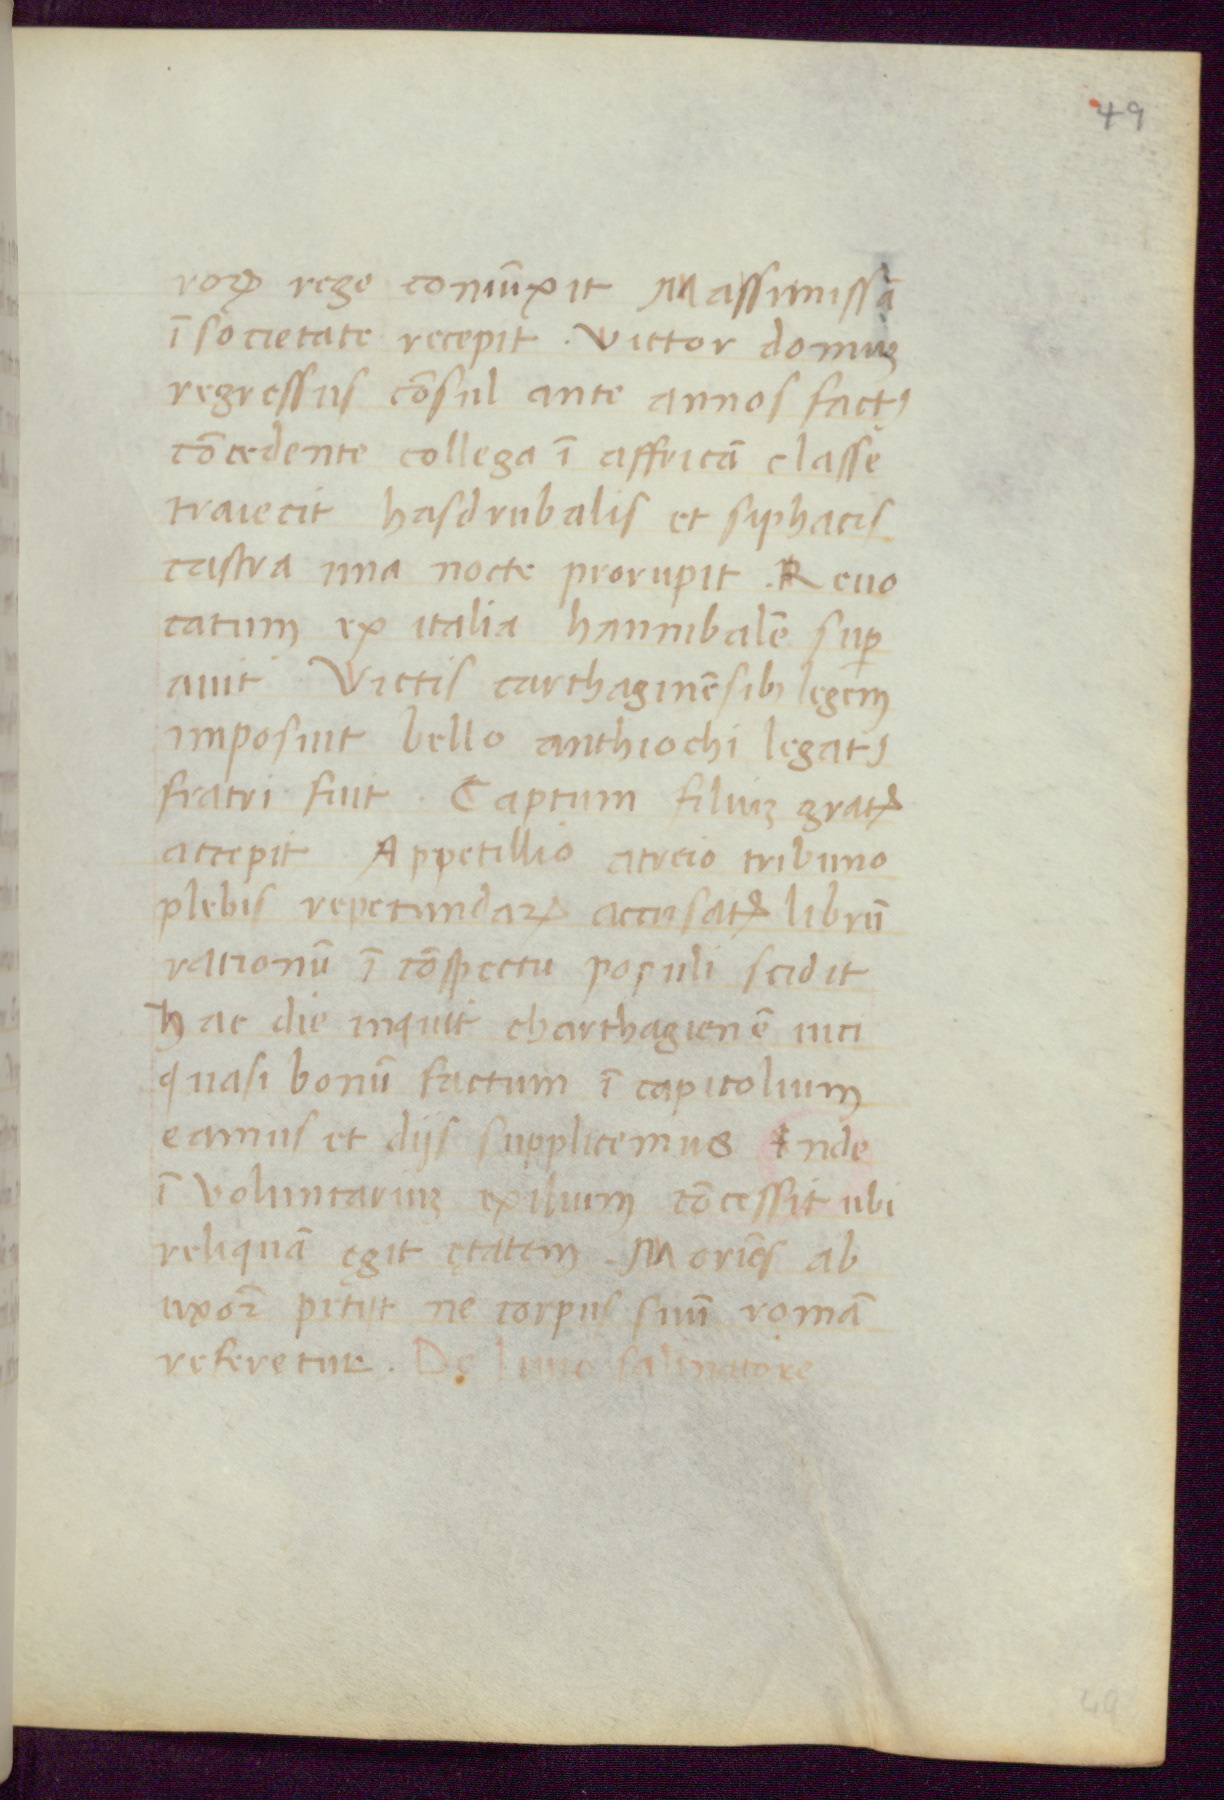 49
roꝝ rege coniūxit Massinissā
ī societate recepit . Victor domuꝫ
regressus cōsul ante annos factꝰ
cōcedente collega ī affricā classē
traiecit hasdrubalis et siphacis
castra una nocte prorupit . Reuo
catum ex italia hannibalē suꝑ
auit Victis carthaginēsibꝫ legem
imposuit bello anthiochi legatꝰ
fratri fuit . Captum filiuꝫ gratꝭ
accepit Appetillio atreio tribuno
plebis repetundaꝝ accusatꝰ librū
rationū ī cōspectu populi scidit
hac die inquit charthagienē uici
quasi bonū factum ī capitolium
eamus et dijs supplicemus Inde
ī voluntariuꝫ exilium cōcessit ubi
reliquā ęgit ętatem . Moriēs ab
uxoꝛ̄ petijt ne corpus suū romā
referetur . De liuio salinatore
49